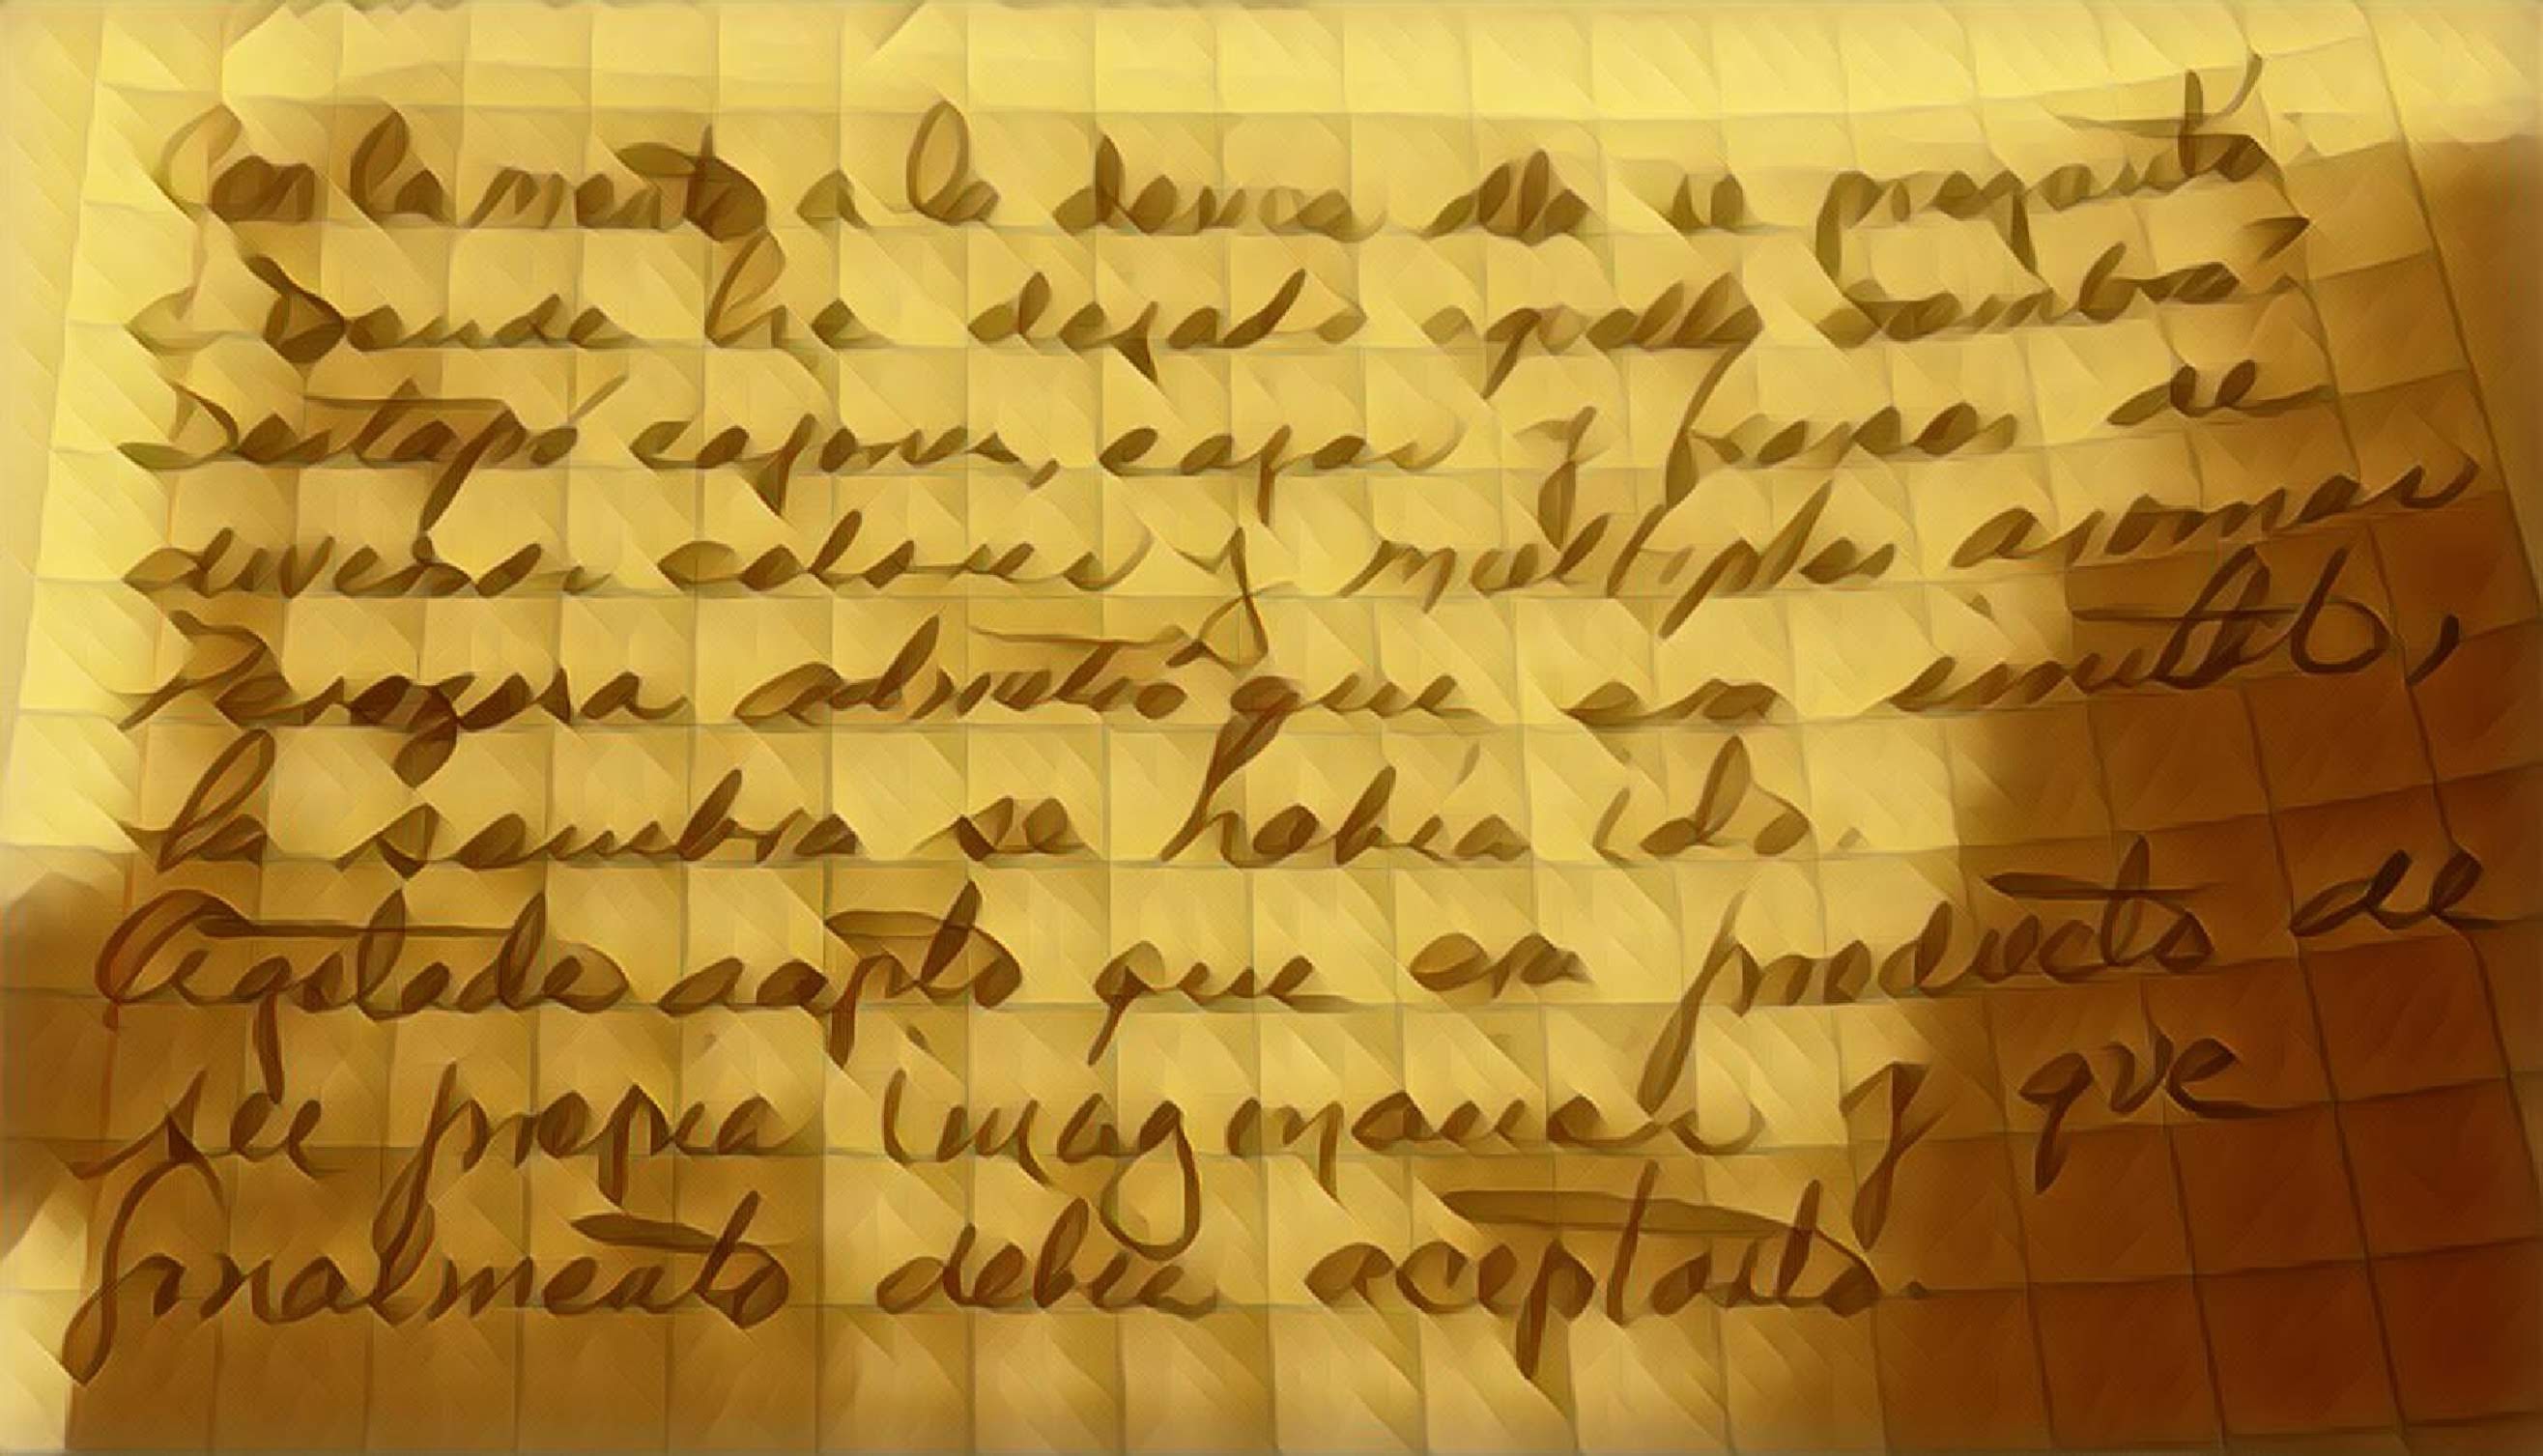 Con la mente a la deriva ella se preguntó
Donde he dejado aquella sombra?
Destapó cajones, cajas y frascos de
diversos colores y multiples aromas
Perezosa admitió que era inutil,
la sombra se había ido.
Agotada aceptó que era producto de
su propia imaginación y que
finalmente debía aceptarlo.